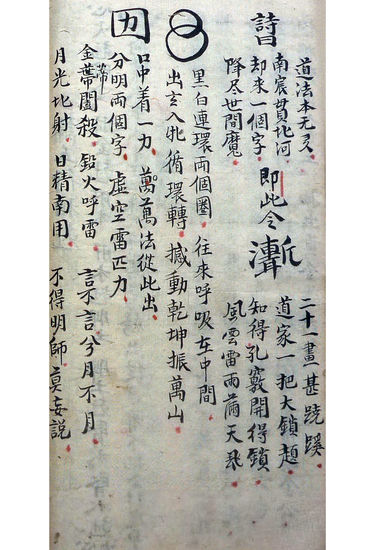 詩曰
道法本无多
南宸貫北河
却來一個字
降尽世間魔
即此令
二十一畫甚蹺蹊
道家一把大鎖
知得孔竅開得鎖
風雲雷雨天飛
黑白連環兩個圈 往來呼吸在中間
出玄入牝循環轉 撼動乾坤振萬山
口中着一力 萬萬法從此出
分明兩個字 虛空雷匹力
金蒂闔殺 鉛火呼雷 言不言兮月不月
月光北射 日精南用 不得明師莫妄説